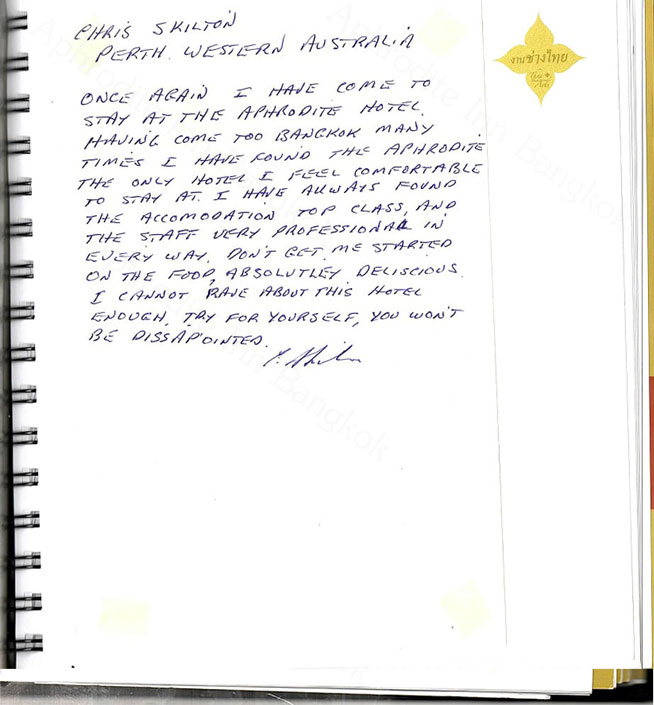 CHRIS SKILTON
PERTH. WESTERN AUSTRALIA
ONCE AGAIN I HAVE COME TO
STAY AT THE APHRODITE HOTEL.
HAVING COME TOO BANGKOK MANY
TIMES I HAVE FOUND THE APHRODITE
THE ONLY HOTEL I FEEL COMFORTABLE
TO STAY AT. I HAVE ALWAYS FOUND
THE ACCOMODATION TOP CLASS, AND
THE STAFF VERY PROFESSIONAL IN
EVERY WAY. DON'T GET ME STARTED
ON THE FOOD, ABSOLUTLEY DELISCIOUS.
I CANNOT RAVE ABOUT THIS HOTEL
ENOUGH, TRY FOR YOURSELF, YOU WON'T
BE DISSAPOINTED.
งานช่างไทย
Aphrodite Inn Bangkok
Aphrodite Inn Bangkok
Inn Bangkok